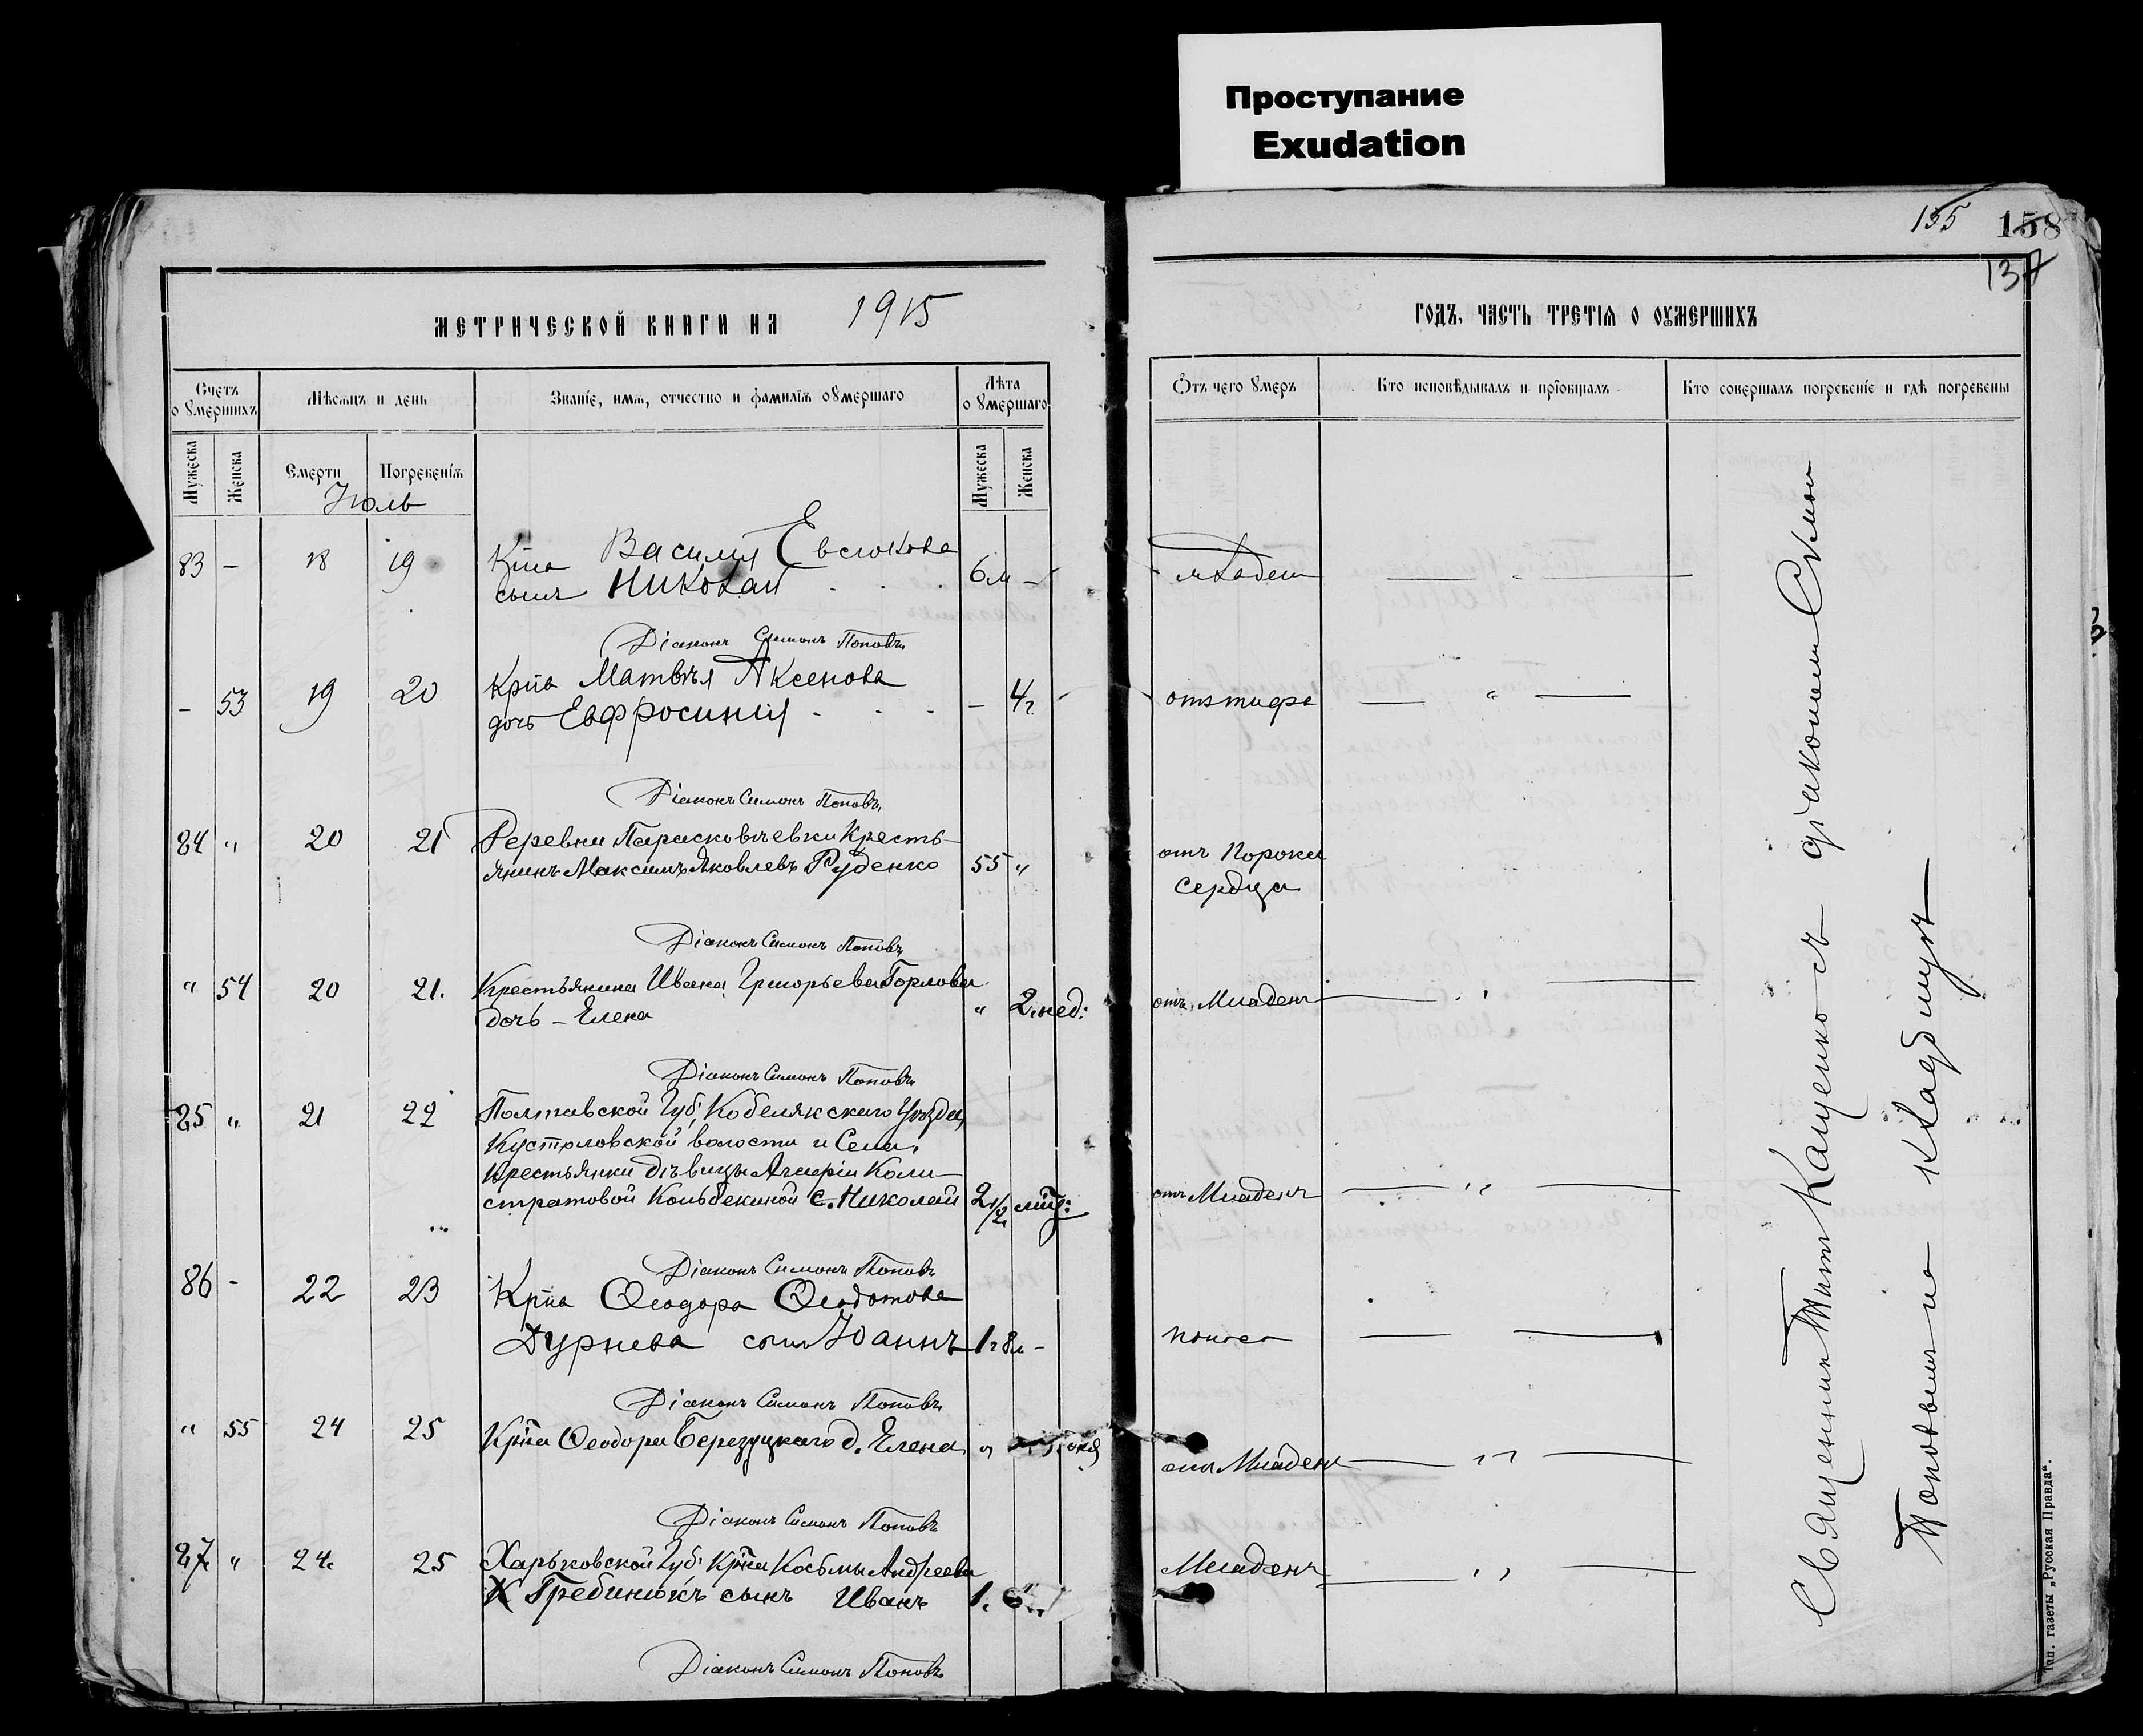 Проступание
Exudation
155 158
137
МЕТРИЧЕСКОЙ КНИГИ НА 1915
ГОДЪ, ЧАСТЬ ТРЕТІЯ О ОУМЕРШИХЪ
Счетъ о умершихъ
Мѣсяцъ и день
Званіе, имя, отчество и фамилія оумершаго
Лѣта о умершаго
Отъ чего умеръ
Кто исповѣдывалъ и пріобщалъ
Кто совершалъ погребеніе и гдѣ погребены
Мужеска Женска Смерти Погребенія Мужеска Женска
Іюль
83 - 18 19 Кр̄на Василія Евсюкова
сынъ Николай 6 м -
младен
Діаконъ Симонъ Поповъ
- 53 19 20 Кр̄на Матвѣя Аксенова
дочь Евфросинія - 4 г.
отъ тифа - " -
Діаконъ Симонъ Поповъ
84 " 20 21 Деревни Парасковѣевки Кресть-
янинъ Максимъ Яковлевъ Руденко 55 "
отъ порока
сердца
Діаконъ Симонъ Поповъ
" 54 20 21. Крестьянина Ивана Григорьева Горлова
дочь - Елена " 2. нед:
отъ Младенч
Діаконъ Симонъ Поповъ
85 " 21 22 Полтавской Губ. Кобелякскаго Уѣзда,
Кустоловской волости и Села,
Крестьянки дѣвицы Кали-
стратовой С. Николай 2 1/2
отъ Младенч - " -
Діаконъ Симонъ Поповъ
86 - 22 23 Кр̄на Ѳеодора Ѳеодотова
Дурнева сынъ Іоаннъ 1 г 8 м -
понос
Діаконъ Симонъ Поповъ
" 55 24 25 Кр̄на Ѳеодора Березуцкаго д. Елена "
отъ Младенч - " -
Діаконъ Симонъ Поповъ
87 " 24 25 Харьковской Губ. Кр̄на Косьмы Андреева
Гребинюкъ сынъ Иванъ 1.
Младенч - " -
Діаконъ Симонъ Поповъ
Священникъ Титъ Кащенко съ діакономъ Симон
Поповымъ на кладбищѣ
Тип. газеты „Русская Правда“.